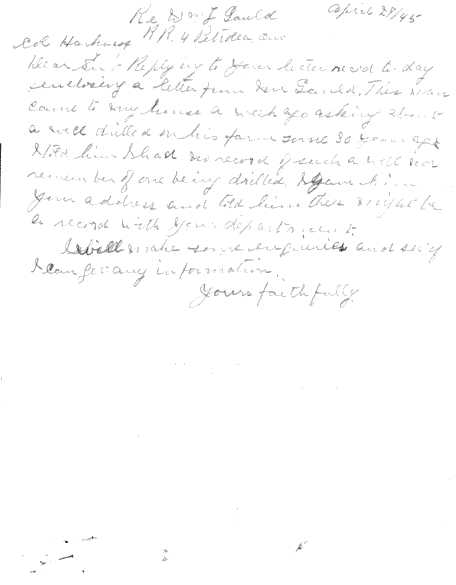 Re Wm J Gauld April 28/45
R.R. 4 Petrolea, Ont
Col Harkness
Dear Sir:- Replying to your letter rec'd to day
enclosing a letter from Mr Gauld. This man
came to my house a week ago asking about
a well drilled on his farm some 30 years ago
I told him I had no record of such a well nor
remember of one being drilled. I gave him
your address and told him there might be
a record with your department.
I will make some enquiries and see if
I can get any information.
Yours faithfully